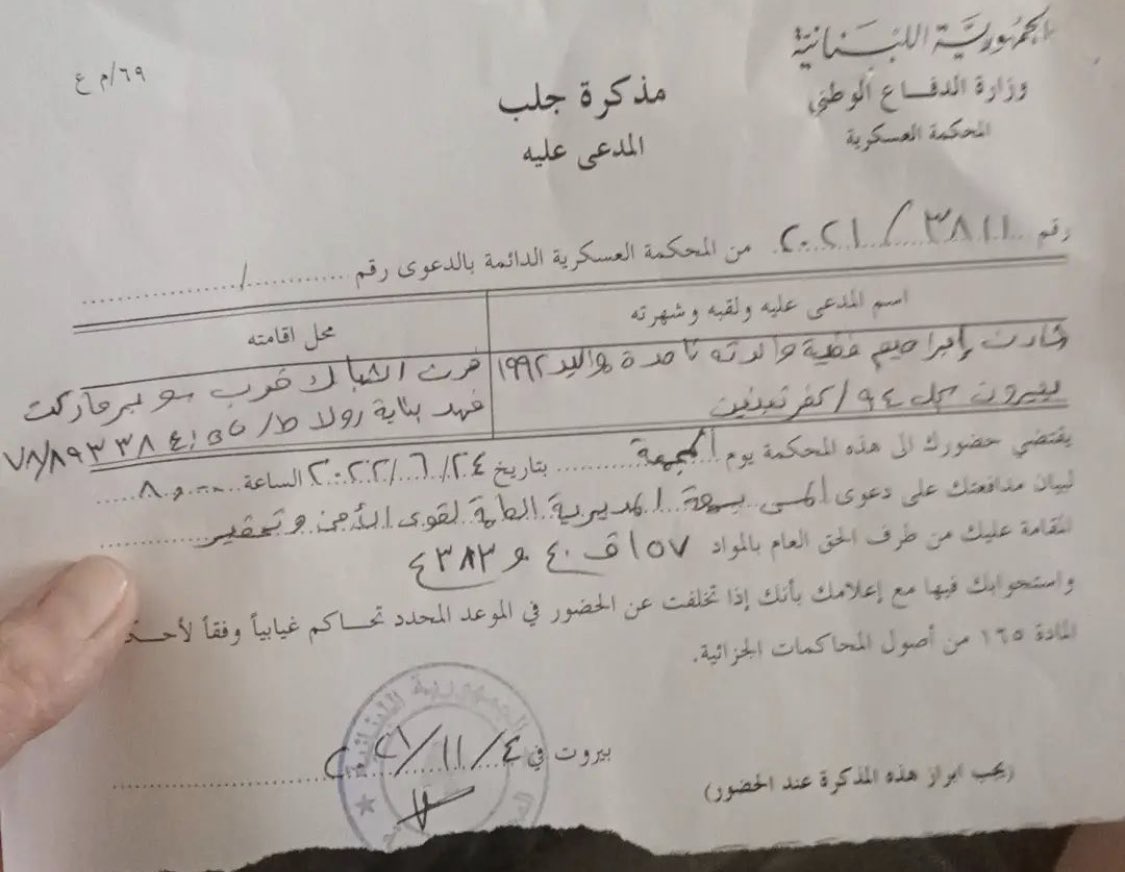 الجمهورية اللبنانية
وزارة الدفاع الوطني
المحكمة العسكرية
٦٩/م ع
مذكرة جلب
المدعى عليه
رقم ٣٨١١ / ٢٠٢١ من المحكمة العسكرية الدائمة بالدعوى رقم /
اسم المدعى عليه ولقبه وشهرته
محل اقامته
إبراهيم والدته مواليد ١٩٩٢
بيروت سجل ٩٤/كفر تبنين
فرن الشباك قرب سوبر ماركت
فهد بناية رولا ط/ ٧٨/٨٩٣٣٨٤
يقتضي حضورك الى هذه المحكمة يوم الجمعة بتاريخ ٢٤/٦/٢٠٢٢ الساعة ٨,٠٠
لبيان مدافعتك على دعوى المس بسمعة المديرية العامة لقوى الأمن وتحقير
المقامة عليك من طرف الحق العام بالمواد ١٥٧ ق ع و ٣٨٣ ع
واستجوابك فيها مع إعلامك بأنك إذا تخلفت عن الحضور في الموعد المحدد تحاكم غيابياً وفقاً
المادة ١٦٥ من أصول المحاكمات الجزائية.
بيروت في ٤/١١/٢٠٢١
(يجب ابراز هذه المذكرة عند الحضور)
الجمهورية اللبنانية